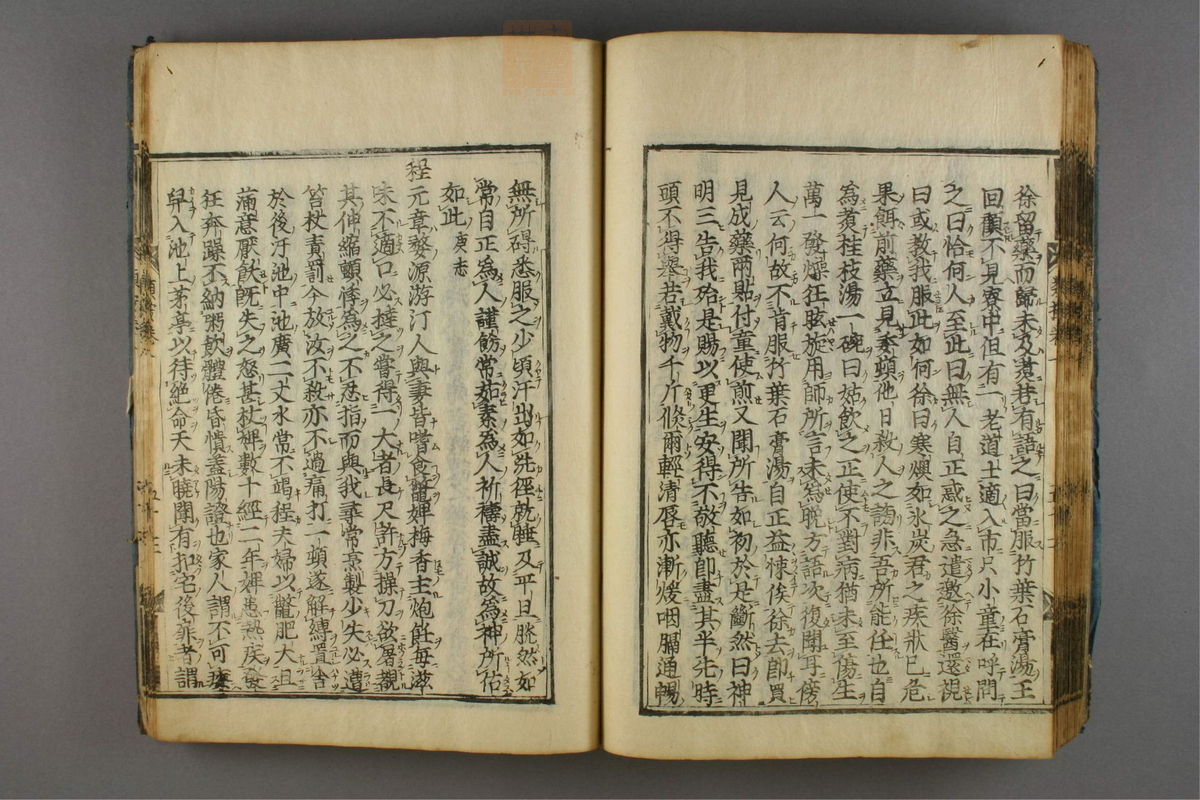 徐留藥而歸未及煑巷有語之曰當服竹葉石膏湯王
回顧不見寮中但有一老道士適入市只小童在呼問
之曰恰何人至此曰無人自正惑之急遣邀徐醫還視
曰或教我服此如何徐曰寒燠如氷炭君之疾狀已危
果餌前藥立見委頓他日殺人之謗非吾所能任也自
為煑桂枝湯一碗曰姑飲之正使不對病猶未至傷生
萬一發燥狂眩旋用師所言未為晚方語次復聞耳傍
人云何故不肯服竹葉石膏湯自正益悚俟徐去即買
見成藥兩貼付童使煎又聞所告如初於是斷然曰神
明三告我殆是賜以更生安得不敬聽即盡其半先時
頭不得舉若戴物千斤倏爾輕清唇亦漸煖咽膈通暢
無所碍悉服之少頃汗出如洗徑就睡及平旦脫然如
常自正為人謹飭常茹素為人祈禱盡誠故為神所佑
如此 庚志
程元章婺源游汀人與妻皆嗜食鼈婢梅香主炮飪每滋
味不適口必撻之嘗得一大者長尺許方操刀欲屠覩
其伸縮顫悸為之不忍指而與我尋常烹製少失必遭
笞杖責罰今放汝不殺亦不過痛打一頓遂解縛置舍
於後汙池中池廣二丈水常不竭程夫婦以鼈肥大且
滿意厭飲旣失之怒甚杖婢數十經二年婢患熱疾發
狂奔躁不納粥飲體倦昏憒蓋陽證也家人謂不可療
舁入池上茅亭以待絕命天未曉聞有扣宅後扉者謂